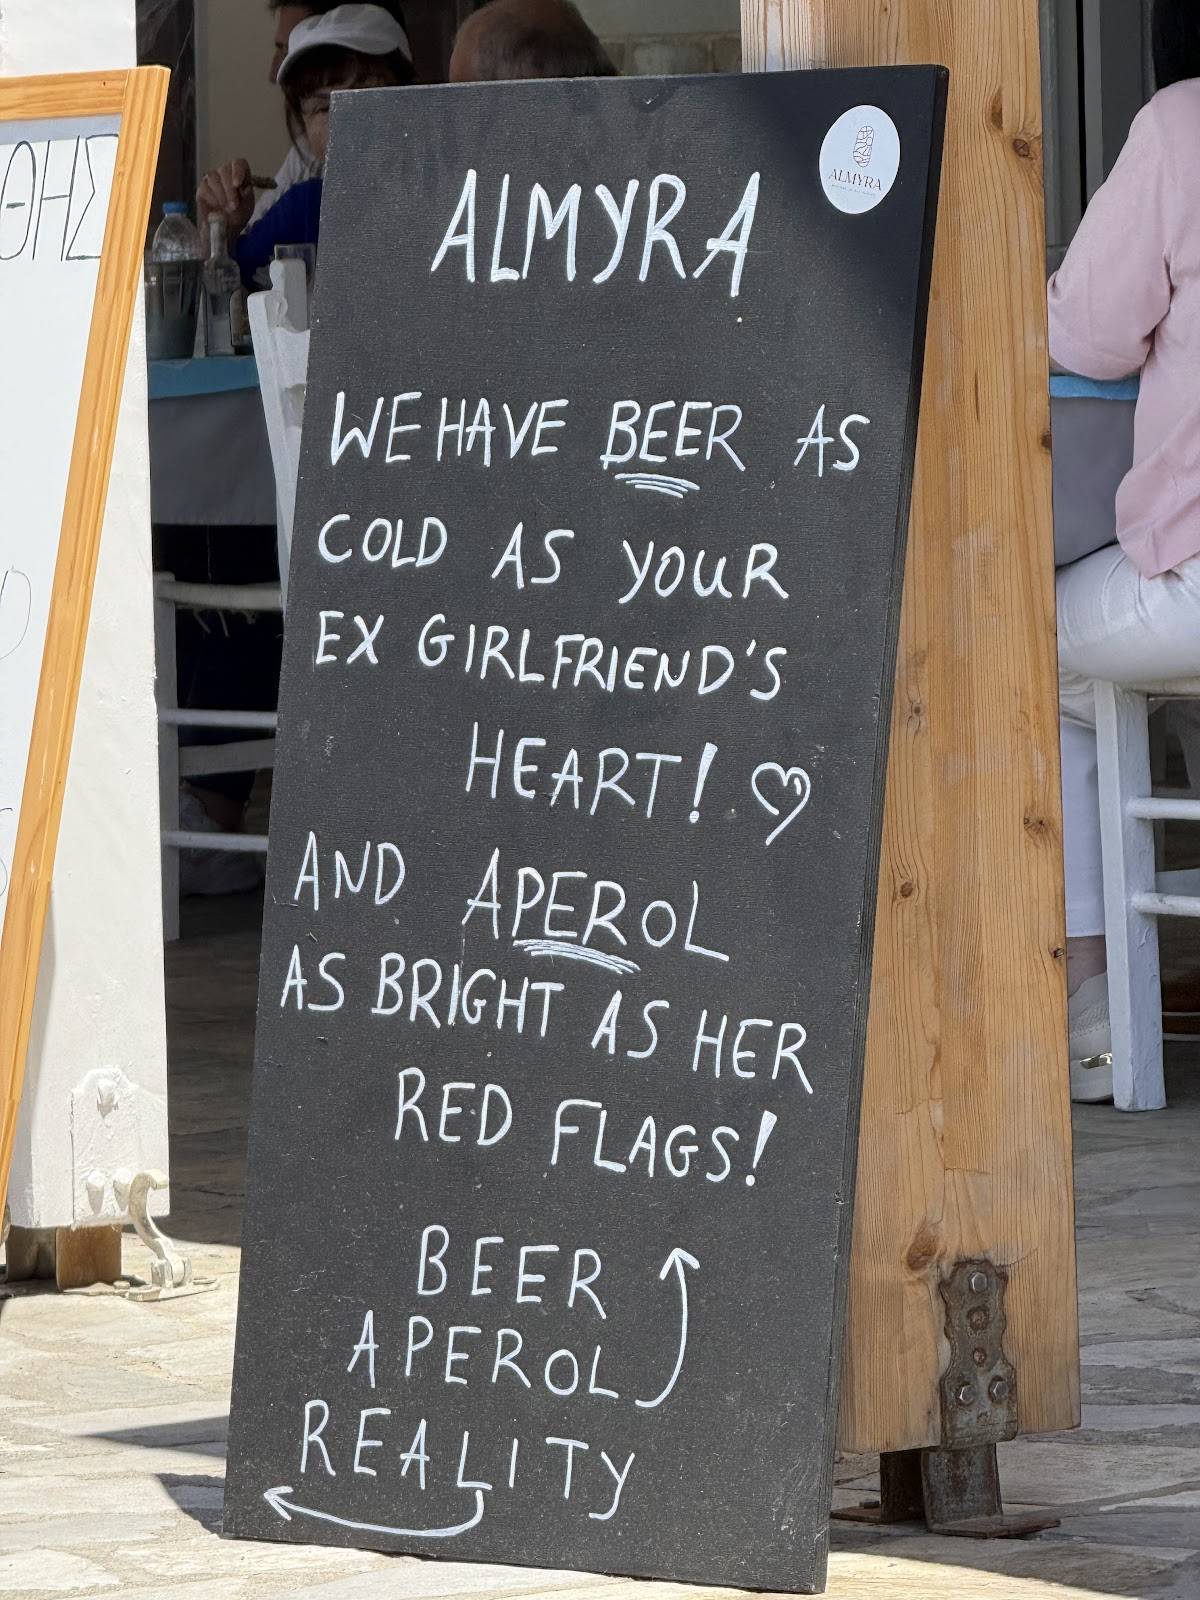 ΘΗΣ
ALMYRA
ALMYRA
WE HAVE BEER AS
COLD AS YOUR
EX GIRLFRIEND'S
HEART! ♡
AND APEROL
AS BRIGHT AS HER
RED FLAGS!
BEER
APEROL
REALITY